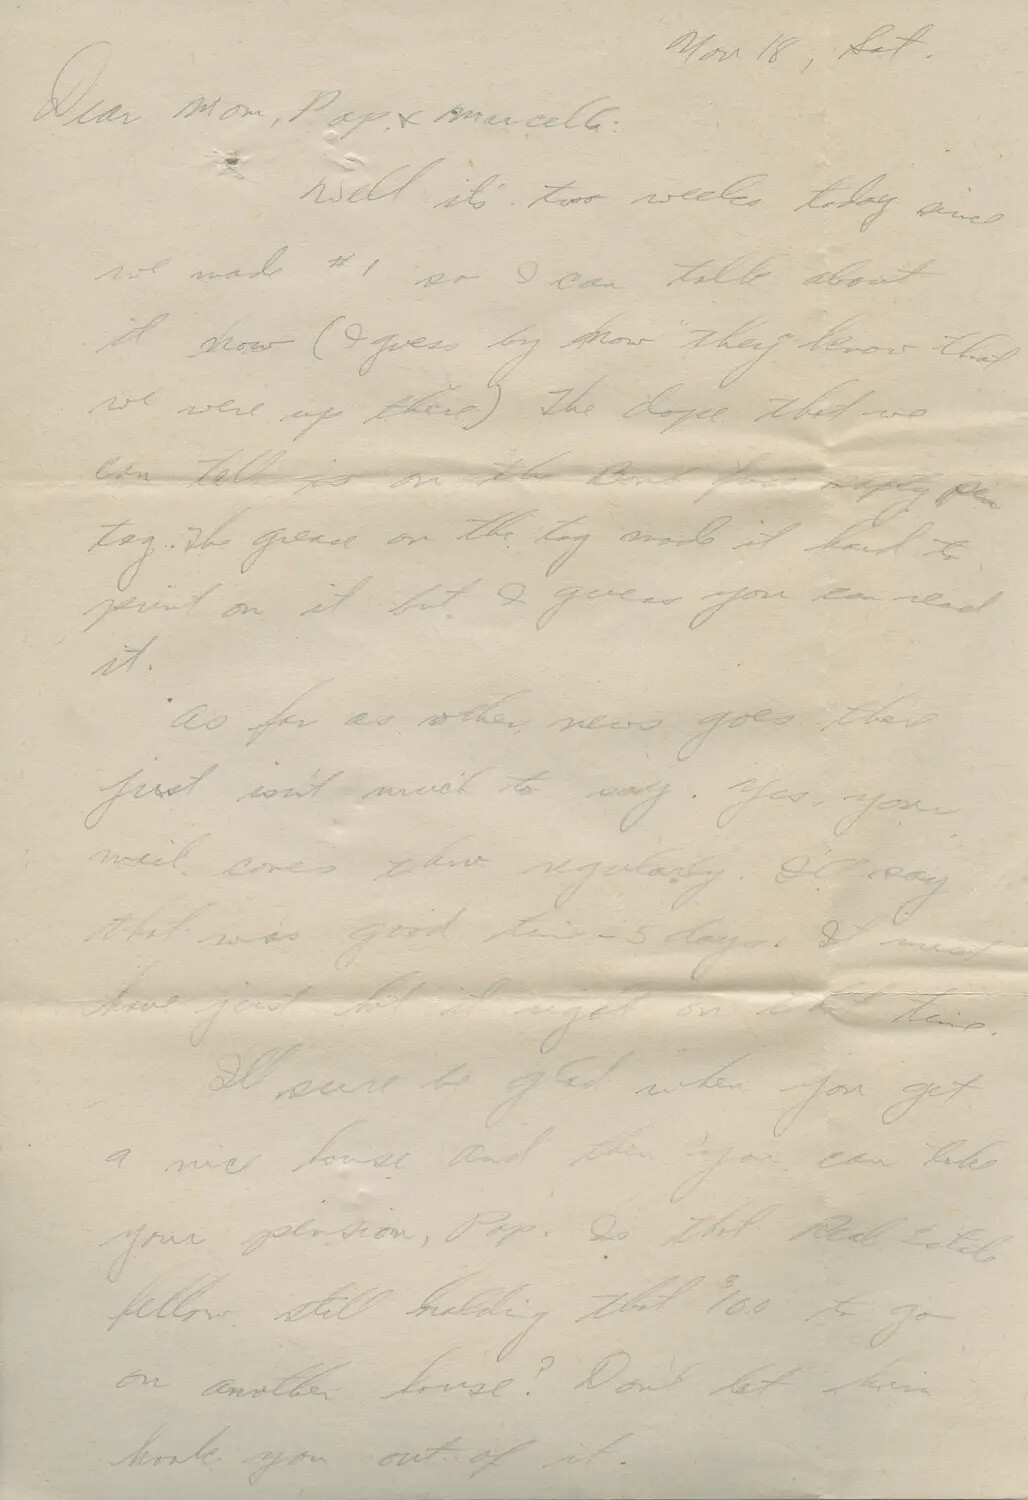 Nov 18, Sat.
Dear Mom, Pop & Marcella:
Well it's two weeks today since
we made #1 so I can talk about
it now (I guess by now "they" know that
we were up there) The dope that we
can tell is on the Bomb fuse safety pin
tag. The grease on the tag made it hard to
print on it but I guess you can read
it.
As far as other news goes there
just isn't much to say. Yes, your
mail comes thru regularly. I'll say
that was good time - 5 days. It must
have just hit it right on that time.
I'll sure be glad when you get
a nice house and then you can take
your pension, Pop. Is that Real Estate
fellow still holding that $100 to go
on another house? Don't let him
hook you out of it.